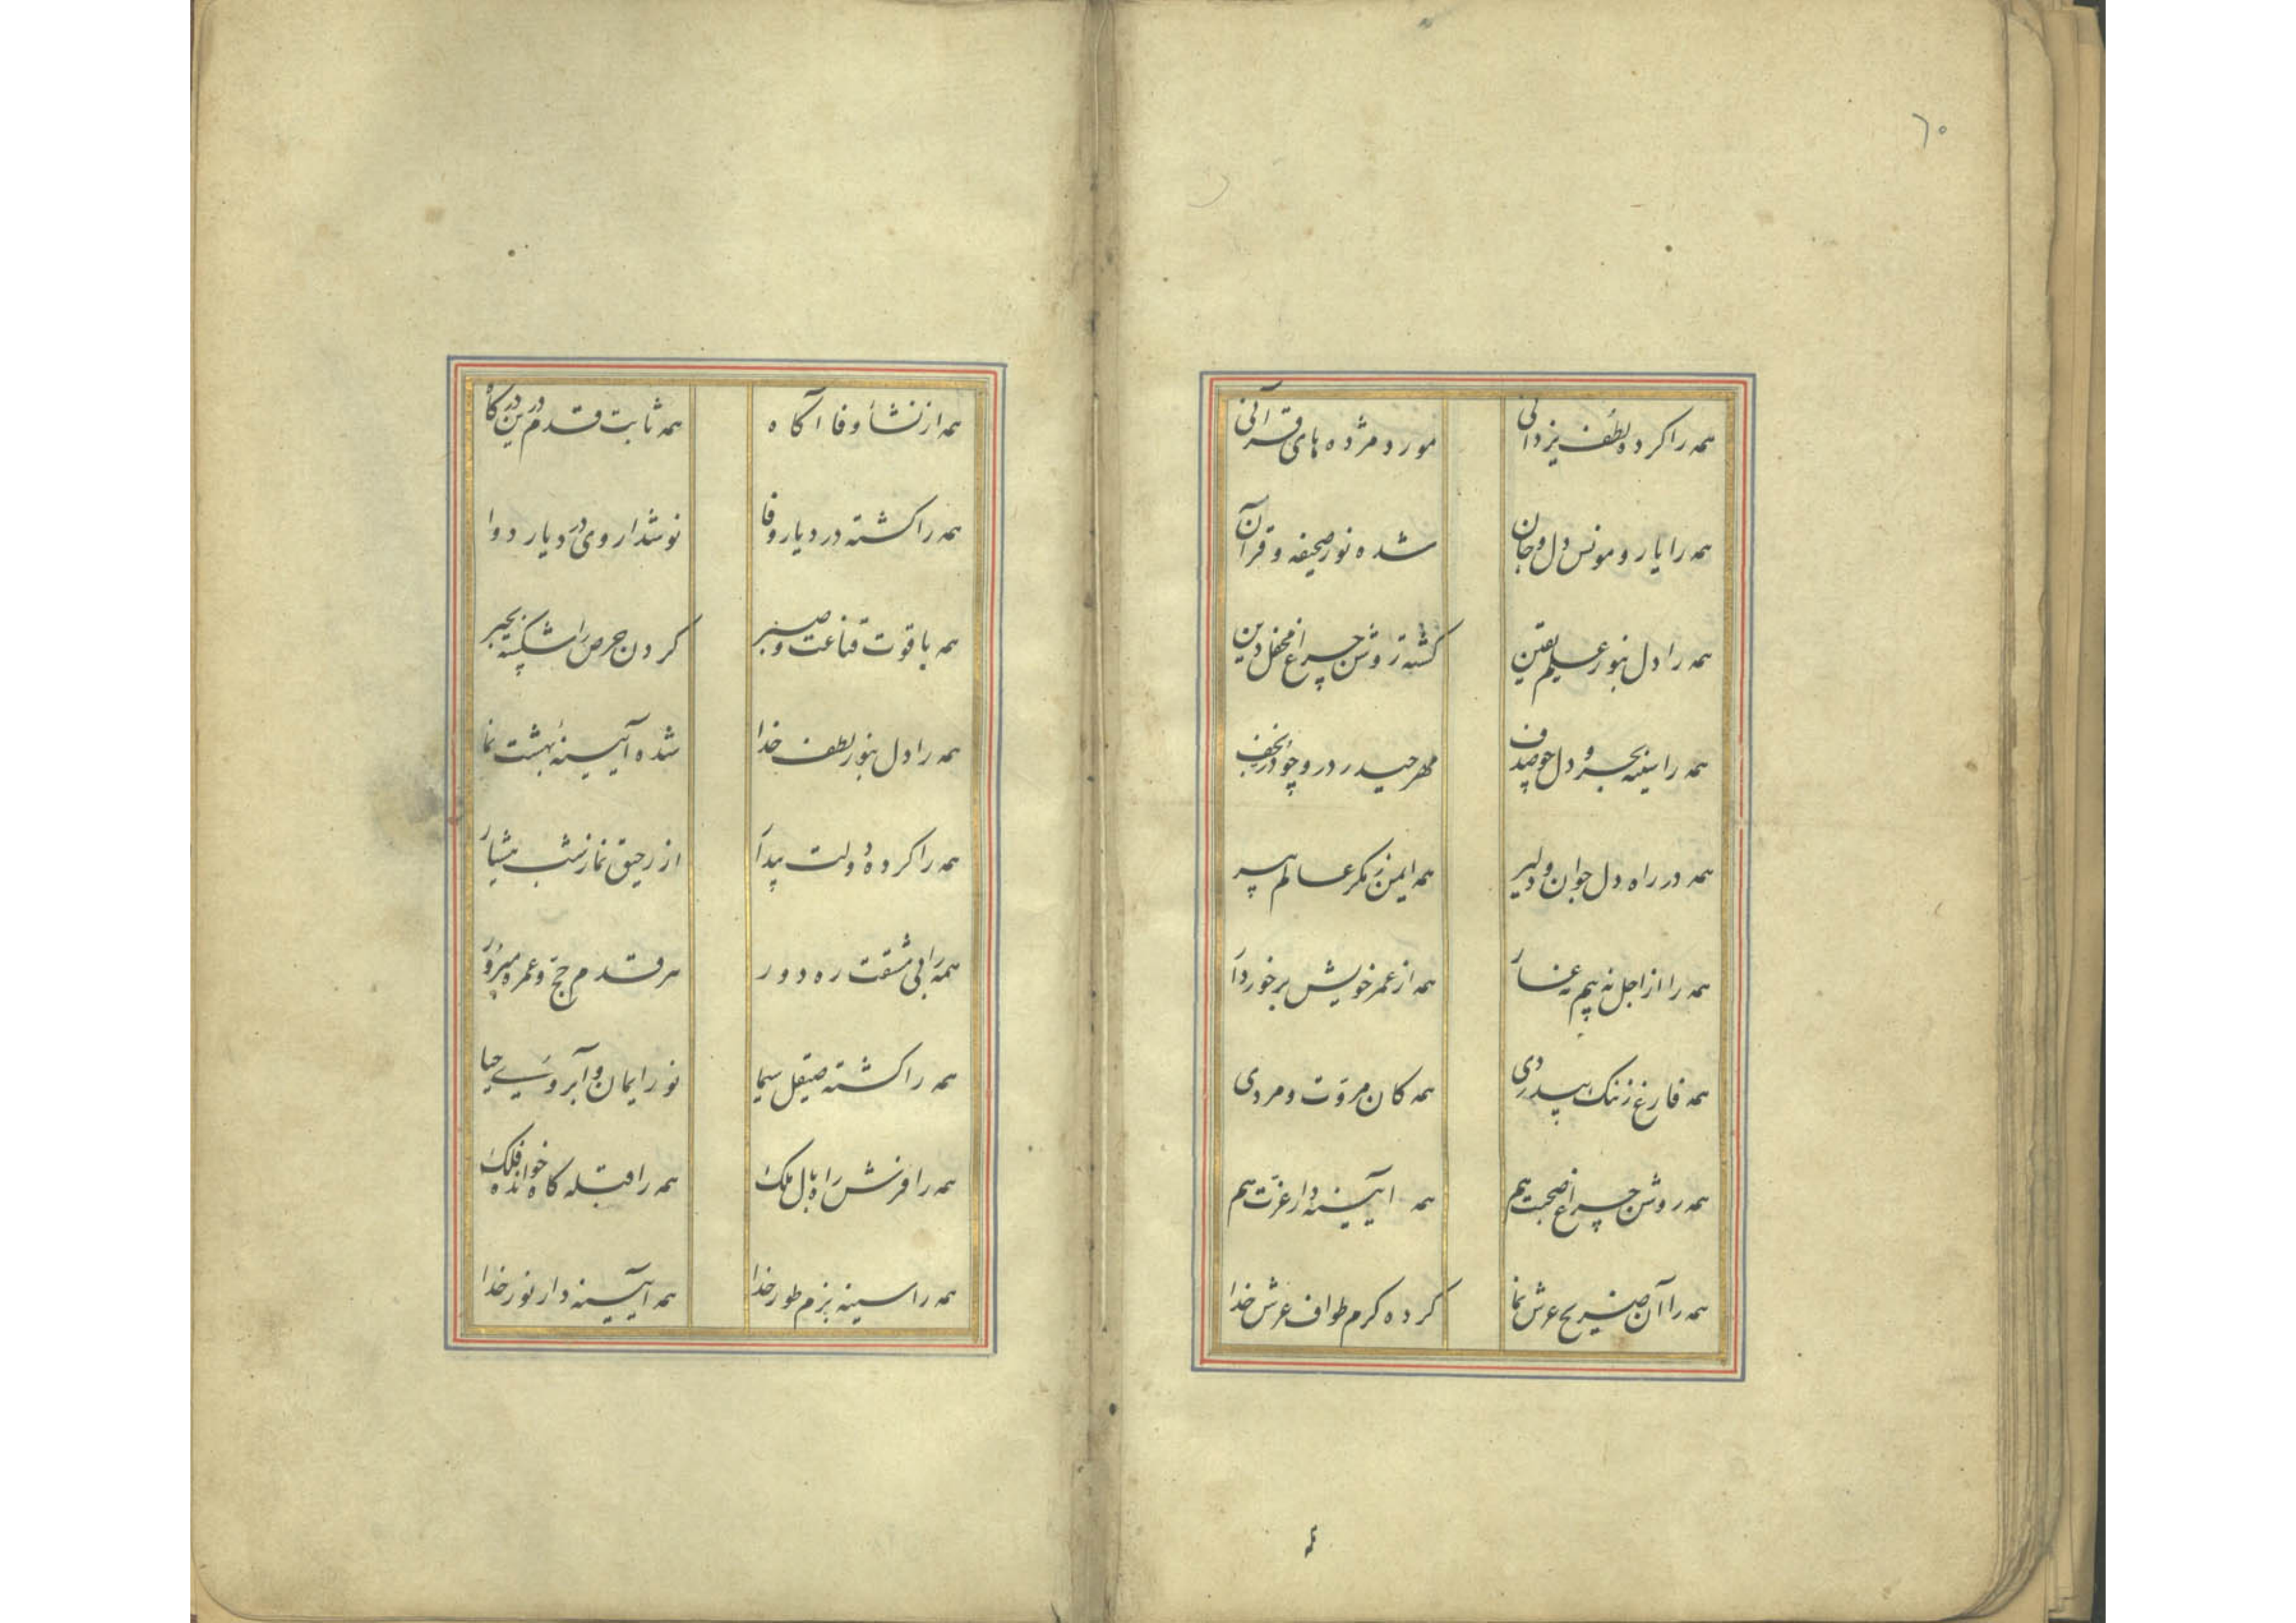 ٦٠
همه را کرده لطف یزدانی مورد مژده های قرآنی
همه را یار و مونس دل و جان شده نور صحیفه و قرآن
همه را دل بنور علم یقین کشته روشن چراغ محفل دین
همه را سینه بحر و دل چو صدف مهر حیدر درو چو در نجف
همه در راه دل جوان و دلیر همه ایمن ز مکر عالم پیر
همه را از اجل نه بیم نه عار همه از عمر خویش برخوردار
همه فارغ ز ننک بیدردی همه کان مروّت و مردی
همه روشن چراغ صحبت هم همه آیینه دار عزّت هم
همه را آن ضریح عرش نما کرده کرم طواف عرش خدا
همه از نشأ وفا آکاه همه ثابت قدم درین درکاه
همه را کشته در دیار وفا نوشداروی درد یار دوا
همه با قوت قناعت و صبر کردن حرص را شکسته بجبر
همه را دل بنور لطف خدا شده آیینهٔ بهشت نما
همه را کرده دولت بیدار از رحیق نماز شب هشیار
همه را بی مشقت ره دور هر قدم حجّ و عمره مبرور
همه را کشته صیقل سیما نور ایمان و آبروی حیا
همه را فرش راه بال ملک همه را قبله کاه خوانده فلک
همه را سینه بزم طور خدا همه آیینه دار نور خدا